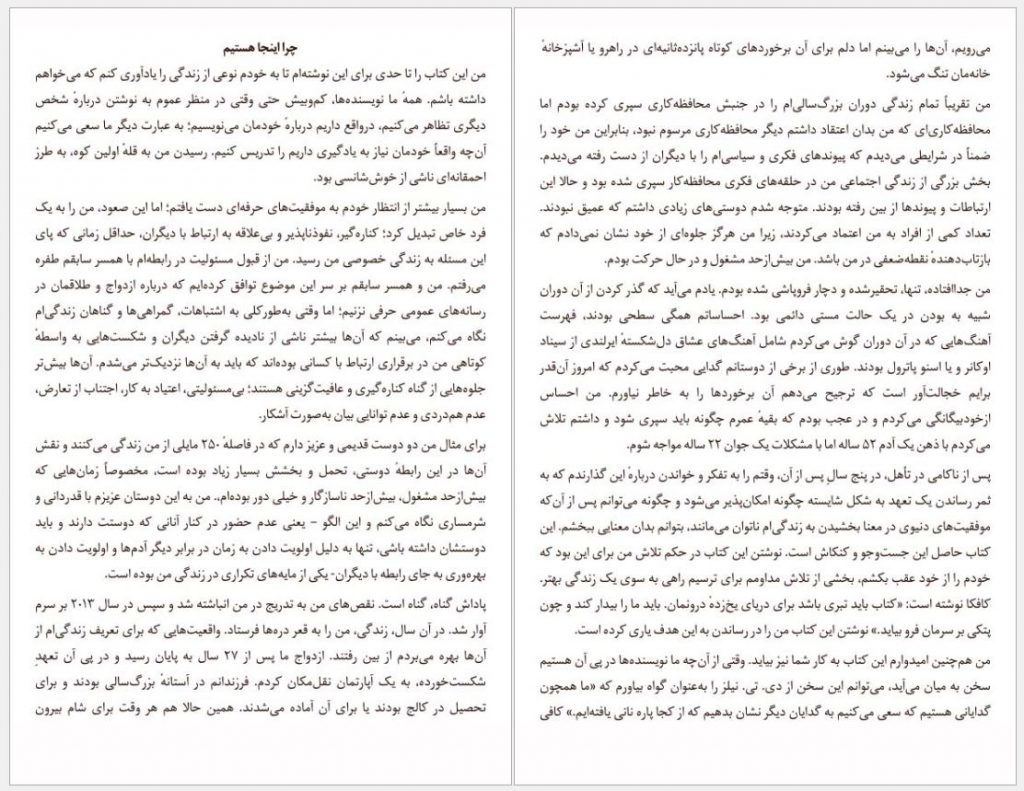 چرا اینجا هستیم
من این کتاب را تا حدی برای این نوشته‌ام تا به خودم نوعی از زندگی را یادآوری کنم که می‌خواهم
داشته باشم. همهٔ ما نویسنده‌ها، کم‌وبیش حتی وقتی در منظر عموم به نوشتن دربارهٔ شخص
دیگری تظاهر می‌کنیم، درواقع داریم دربارهٔ خودمان می‌نویسیم؛ به عبارت دیگر ما سعی می‌کنیم
آن‌چه واقعاً خودمان نیاز به یادگیری داریم را تدریس کنیم. رسیدن من به قلهٔ اولین کوه، به طرز
احمقانه‌ای ناشی از خوش‌شانسی بود.
من بسیار بیشتر از انتظار خودم به موفقیت‌های حرفه‌ای دست یافتم؛ اما این صعود، من را به یک
فرد خاص تبدیل کرد؛ کناره‌گیر، نفوذناپذیر و بی‌علاقه به ارتباط با دیگران، حداقل زمانی که پای
این مسئله به زندگی خصوصی من رسید. من از قبول مسئولیت در رابطه‌ام با همسر سابقم طفره
می‌رفتم. من و همسر سابقم بر سر این موضوع توافق کرده‌ایم که درباره ازدواج و طلاقمان در
رسانه‌های عمومی حرفی نزنیم؛ اما وقتی به‌طورکلی به اشتباهات، گمراهی‌ها و گناهان زندگی‌ام
نگاه می‌کنم، می‌بینم که آن‌ها بیشتر ناشی از نادیده گرفتن دیگران و شکست‌هایی به واسطهٔ
کوتاهی من در برقراری ارتباط با کسانی بوده‌اند که باید به آن‌ها نزدیک‌تر می‌شدم. آن‌ها بیش‌تر
جلوه‌هایی از گناه کناره‌گیری و عافیت‌گزینی هستند؛ بی‌مسئولیتی، اعتیاد به کار، اجتناب از تعارض،
عدم هم‌دردی و عدم توانایی بیان به‌صورت آشکار.
برای مثال من دو دوست قدیمی و عزیز دارم که در فاصلهٔ ۲۵۰ مایلی از من زندگی می‌کنند و نقش
آن‌ها در این رابطهٔ دوستی، تحمل و بخشش بسیار زیاد بوده است، مخصوصاً زمان‌هایی که
بیش‌ازحد مشغول، بیش‌ازحد ناسازگار و خیلی دور بوده‌ام،. من به این دوستان عزیزم با قدردانی و
شرمساری نگاه می‌کنم و این الگو – یعنی عدم حضور در کنار آنانی که دوستت دارند و باید
دوستشان داشته باشی، تنها به دلیل اولویت دادن به زمان در برابر دیگر آدم‌ها و اولویت دادن به
بهره‌وری به جای رابطه با دیگران- یکی از مایه‌های تکراری در زندگی من بوده است.
پاداش گناه، گناه است. نقص‌های من به تدریج در من انباشته شد و سپس در سال ۲۰۱۳ بر سرم
آوار شد. در آن سال، زندگی، من را به قعر دره‌ها فرستاد. واقعیت‌هایی که برای تعریف زندگی‌ام از
آن‌ها بهره می‌بردم از بین رفتند. ازدواج ما پس از ۲۷ سال به پایان رسید و در پی آن تعهدِ
شکست‌خورده، به یک آپارتمان نقل‌مکان کردم. فرزندانم در آستانهٔ بزرگ‌سالی بودند و برای
تحصیل در کالج بودند یا برای آن آماده می‌شدند. همین حالا هم هر وقت برای شام بیرون
می‌رویم، آن‌ها را می‌بینم اما دلم برای آن برخوردهای کوتاه پانزده‌ثانیه‌ای در راهرو یا آشپزخانهٔ
خانه‌مان تنگ می‌شود.
من تقریباً تمام زندگی دوران بزرگ‌سالی‌ام را در جنبش محافظه‌کاری سپری کرده بودم اما
محافظه‌کاری‌ای که من بدان اعتقاد داشتم دیگر محافظه‌کاری مرسوم نبود، بنابراین من خود را
ضمناً در شرایطی می‌دیدم که پیوندهای فکری و سیاسی‌ام را با دیگران از دست رفته می‌دیدم.
بخش بزرگی از زندگی اجتماعی من در حلقه‌های فکری محافظه‌کار سپری شده بود و حالا این
ارتباطات و پیوندها از بین رفته بودند. متوجه شدم دوستی‌های زیادی داشتم که عمیق نبودند.
تعداد کمی از افراد به من اعتماد می‌کردند، زیرا من هرگز جلوه‌ای از خود نشان نمی‌دادم که
بازتاب‌دهندهٔ نقطه‌ضعفی در من باشد. من بیش‌ازحد مشغول و در حال حرکت بودم.
من جداافتاده، تنها، تحقیرشده و دچار فروپاشی شده بودم. یادم می‌آید که گذر کردن از آن دوران
شبیه به بودن در یک حالت مستی دائمی بود. احساساتم همگی سطحی بودند، فهرست
آهنگ‌هایی که در آن دوران گوش می‌کردم شامل آهنگ‌های عشاق دل‌شکستهٔ ایرلندی از سیناد
اوکانر و یا اسنو پاترول بودند. طوری از برخی از دوستانم گدایی محبت می‌کردم که امروز آن‌قدر
برایم خجالت‌آور است که ترجیح می‌دهم آن برخوردها را به خاطر نیاورم. من احساس
ازخودبیگانگی می‌کردم و در عجب بودم که بقیهٔ عمرم چگونه باید سپری شود و داشتم تلاش
می‌کردم با ذهن یک آدم ۵۲ ساله اما با مشکلات یک جوان ۲۲ ساله مواجه شوم.
پس از ناکامی در تأهل، در پنج سالِ پس از آن، وقتم را به تفکر و خواندن دربارهٔ این گذارنده که به
ثمر رساندن یک تعهد به شکل شایسته چگونه امکان‌پذیر می‌شود و چگونه می‌توانم پس از آن‌که
موفقیت‌های دنیوی در معنا بخشیدن به زندگی‌ام ناتوان می‌مانند، بتوانم بدان معنایی ببخشم. این
کتاب حاصل این جست‌وجو و کنکاش است. نوشتن این کتاب در حکم تلاش من برای این بود که
خودم را از خود عقب بکشم، بخشی از تلاش مداومم برای ترسیم راهی به سوی یک زندگی بهتر.
کافکا نوشته است: «کتاب باید تبری باشد برای دریای یخ‌زدهٔ درونمان. باید ما را بیدار کند و چون
پتکی بر سرمان فرو بیاید.» نوشتن این کتاب من را در رساندن به این هدف یاری کرده است.
من هم‌چنین امیدوارم این کتاب به کار شما نیز بیاید. وقتی از آن‌چه ما نویسنده‌ها در پی آن هستیم
سخن به میان می‌آید، می‌توانم این سخن از دی. تی. نیلز را به‌عنوان گواه بیاورم که «ما همچون
گدایانی هستیم که سعی می‌کنیم به گدایان دیگر نشان بدهیم که از کجا پاره نانی یافته‌ایم.» کافی